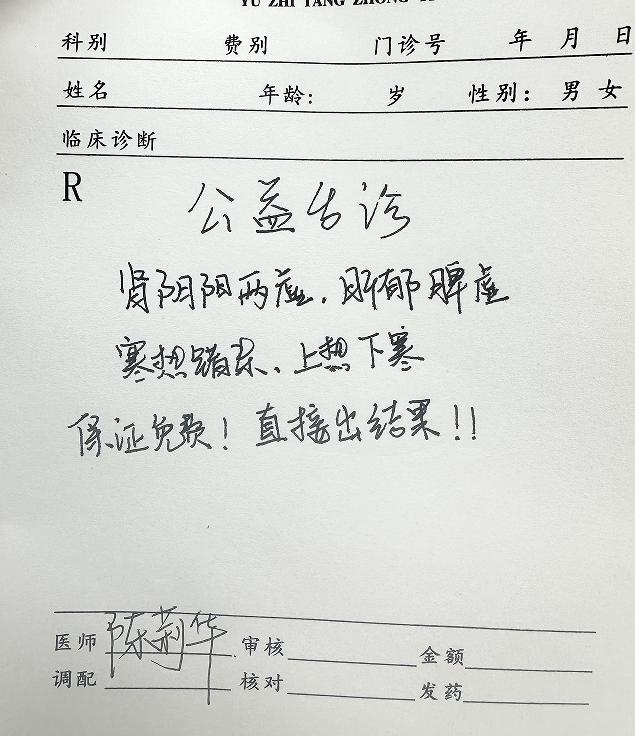 YU ZHI TANG ZHONG
科别 费别 门诊号 年 月 日
姓名 年龄: 岁 性别: 男 女
临床诊断
R
公益舌诊
肾阴阳两虚.肝郁脾虚
寒热错杂、上热下寒
保证免费!直接出结果!!
医师 陈莉华 审核 金额
调配 核对 发药